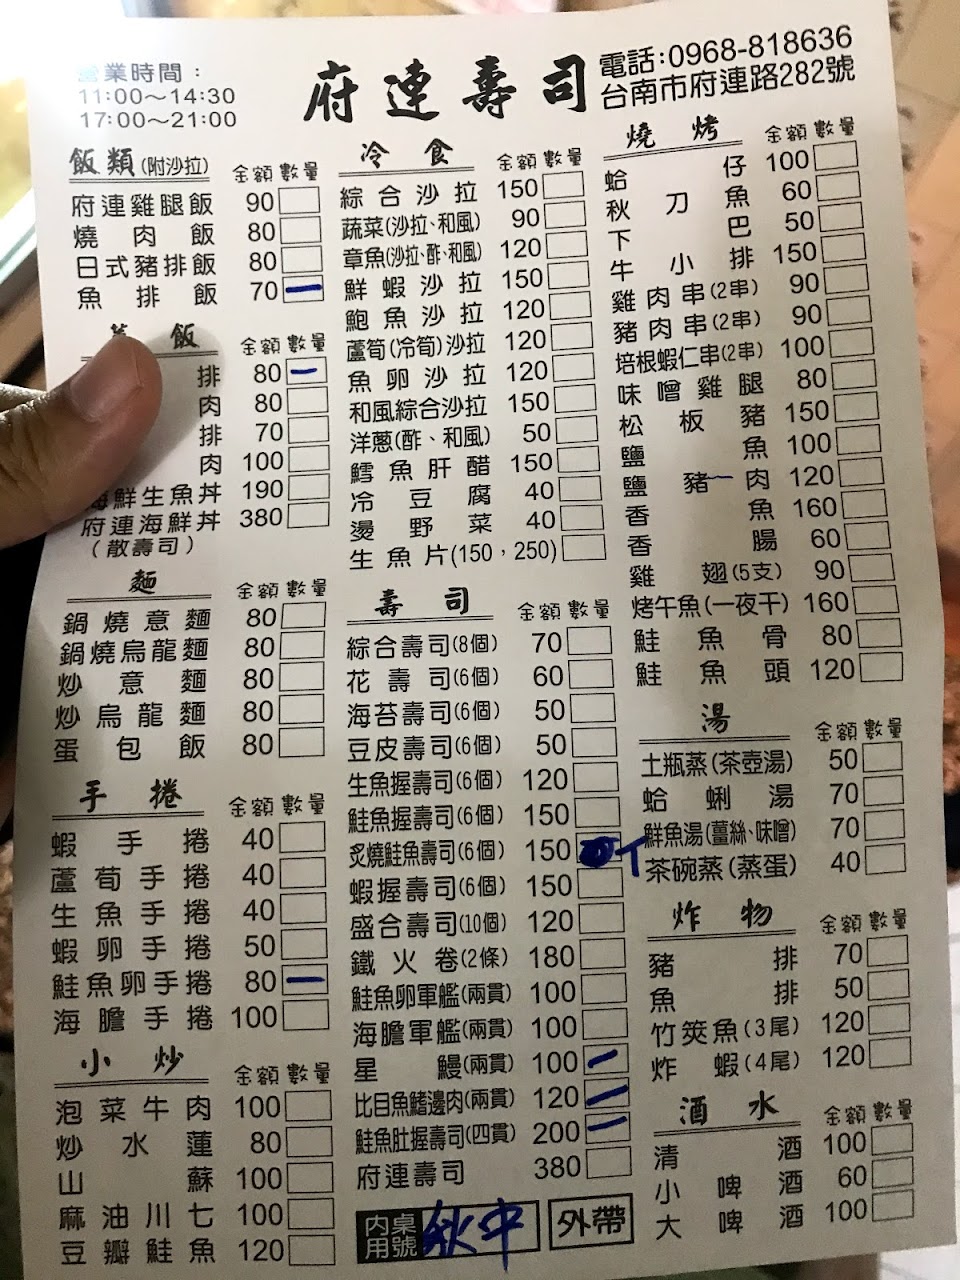 營業時間：
11:00～14:30
17:00～21:00
府連壽司
電話:0968-818636
台南市府連路282號
飯類(附沙拉) 金額 數量
府連雞腿飯 90
燒肉飯 80
日式豬排飯 80
魚排飯 70 一
飯 金額 數量
排 80 一
肉 80
排 70
肉 100
海鮮生魚丼 190
府連海鮮丼 380
(散壽司)
麵 金額 數量
鍋燒意麵 80
鍋燒烏龍麵 80
炒意麵 80
炒烏龍麵 80
蛋包飯 80
手捲 金額 數量
蝦手捲 40
蘆荀手捲 40
生魚手捲 40
蝦卵手捲 50
鮭魚卵手捲 80 一
海膽手捲 100
小炒 金額 數量
泡菜牛肉 100
炒水蓮 80
山蘇 100
麻油川七 100
豆瓣鮭魚 120
冷食 金額 數量
綜合沙拉 150
蔬菜(沙拉、和風) 90
章魚(沙拉、酢、和風) 120
鮮蝦沙拉 150
鮑魚沙拉 120
蘆筍(冷筍)沙拉 120
魚卵沙拉 120
和風綜合沙拉 150
洋蔥(酢、和風) 50
鱈魚肝醋 150
冷豆腐 40
燙野菜 40
生魚片(150，250)
壽司 金額 數量
綜合壽司(8個) 70
花壽司(6個) 60
海苔壽司(6個) 50
豆皮壽司(6個) 50
生魚握壽司(6個) 120
鮭魚握壽司(6個) 150
炙燒鮭魚壽司(6個) 150
蝦握壽司(6個) 150
盛合壽司(10個) 120
鐵火卷(2條) 180
鮭魚卵軍艦(兩貫) 100
海膽軍艦(兩貫) 100
星鰻(兩貫) 100 一
比目魚鰭邊肉(兩貫) 120 一
鮭魚肚握壽司(四貫) 200 一
府連壽司 380
內用 桌號
外帶
燒烤 金額 數量
蛤仔 100
秋刀魚 60
下巴 50
牛小排 150
雞肉串(2串) 90
豬肉串(2串) 90
培根蝦仁串(2串) 100
味噌雞腿 80
松板豬 150
鹽魚 100
鹽豬肉 120
香魚 160
香腸 60
雞翅(5支) 90
烤午魚(一夜干) 160
鮭魚骨 80
鮭魚頭 120
湯 金額 數量
土瓶蒸(茶壺湯) 50
蛤蜊湯 70
鮮魚湯(薑絲、味噌) 70
茶碗蒸(蒸蛋) 40
炸物 金額 數量
豬排 70
魚排 50
竹筴魚(3尾) 120
炸蝦(4尾) 120
酒水 金額 數量
清酒 100
小啤酒 60
大啤酒 100